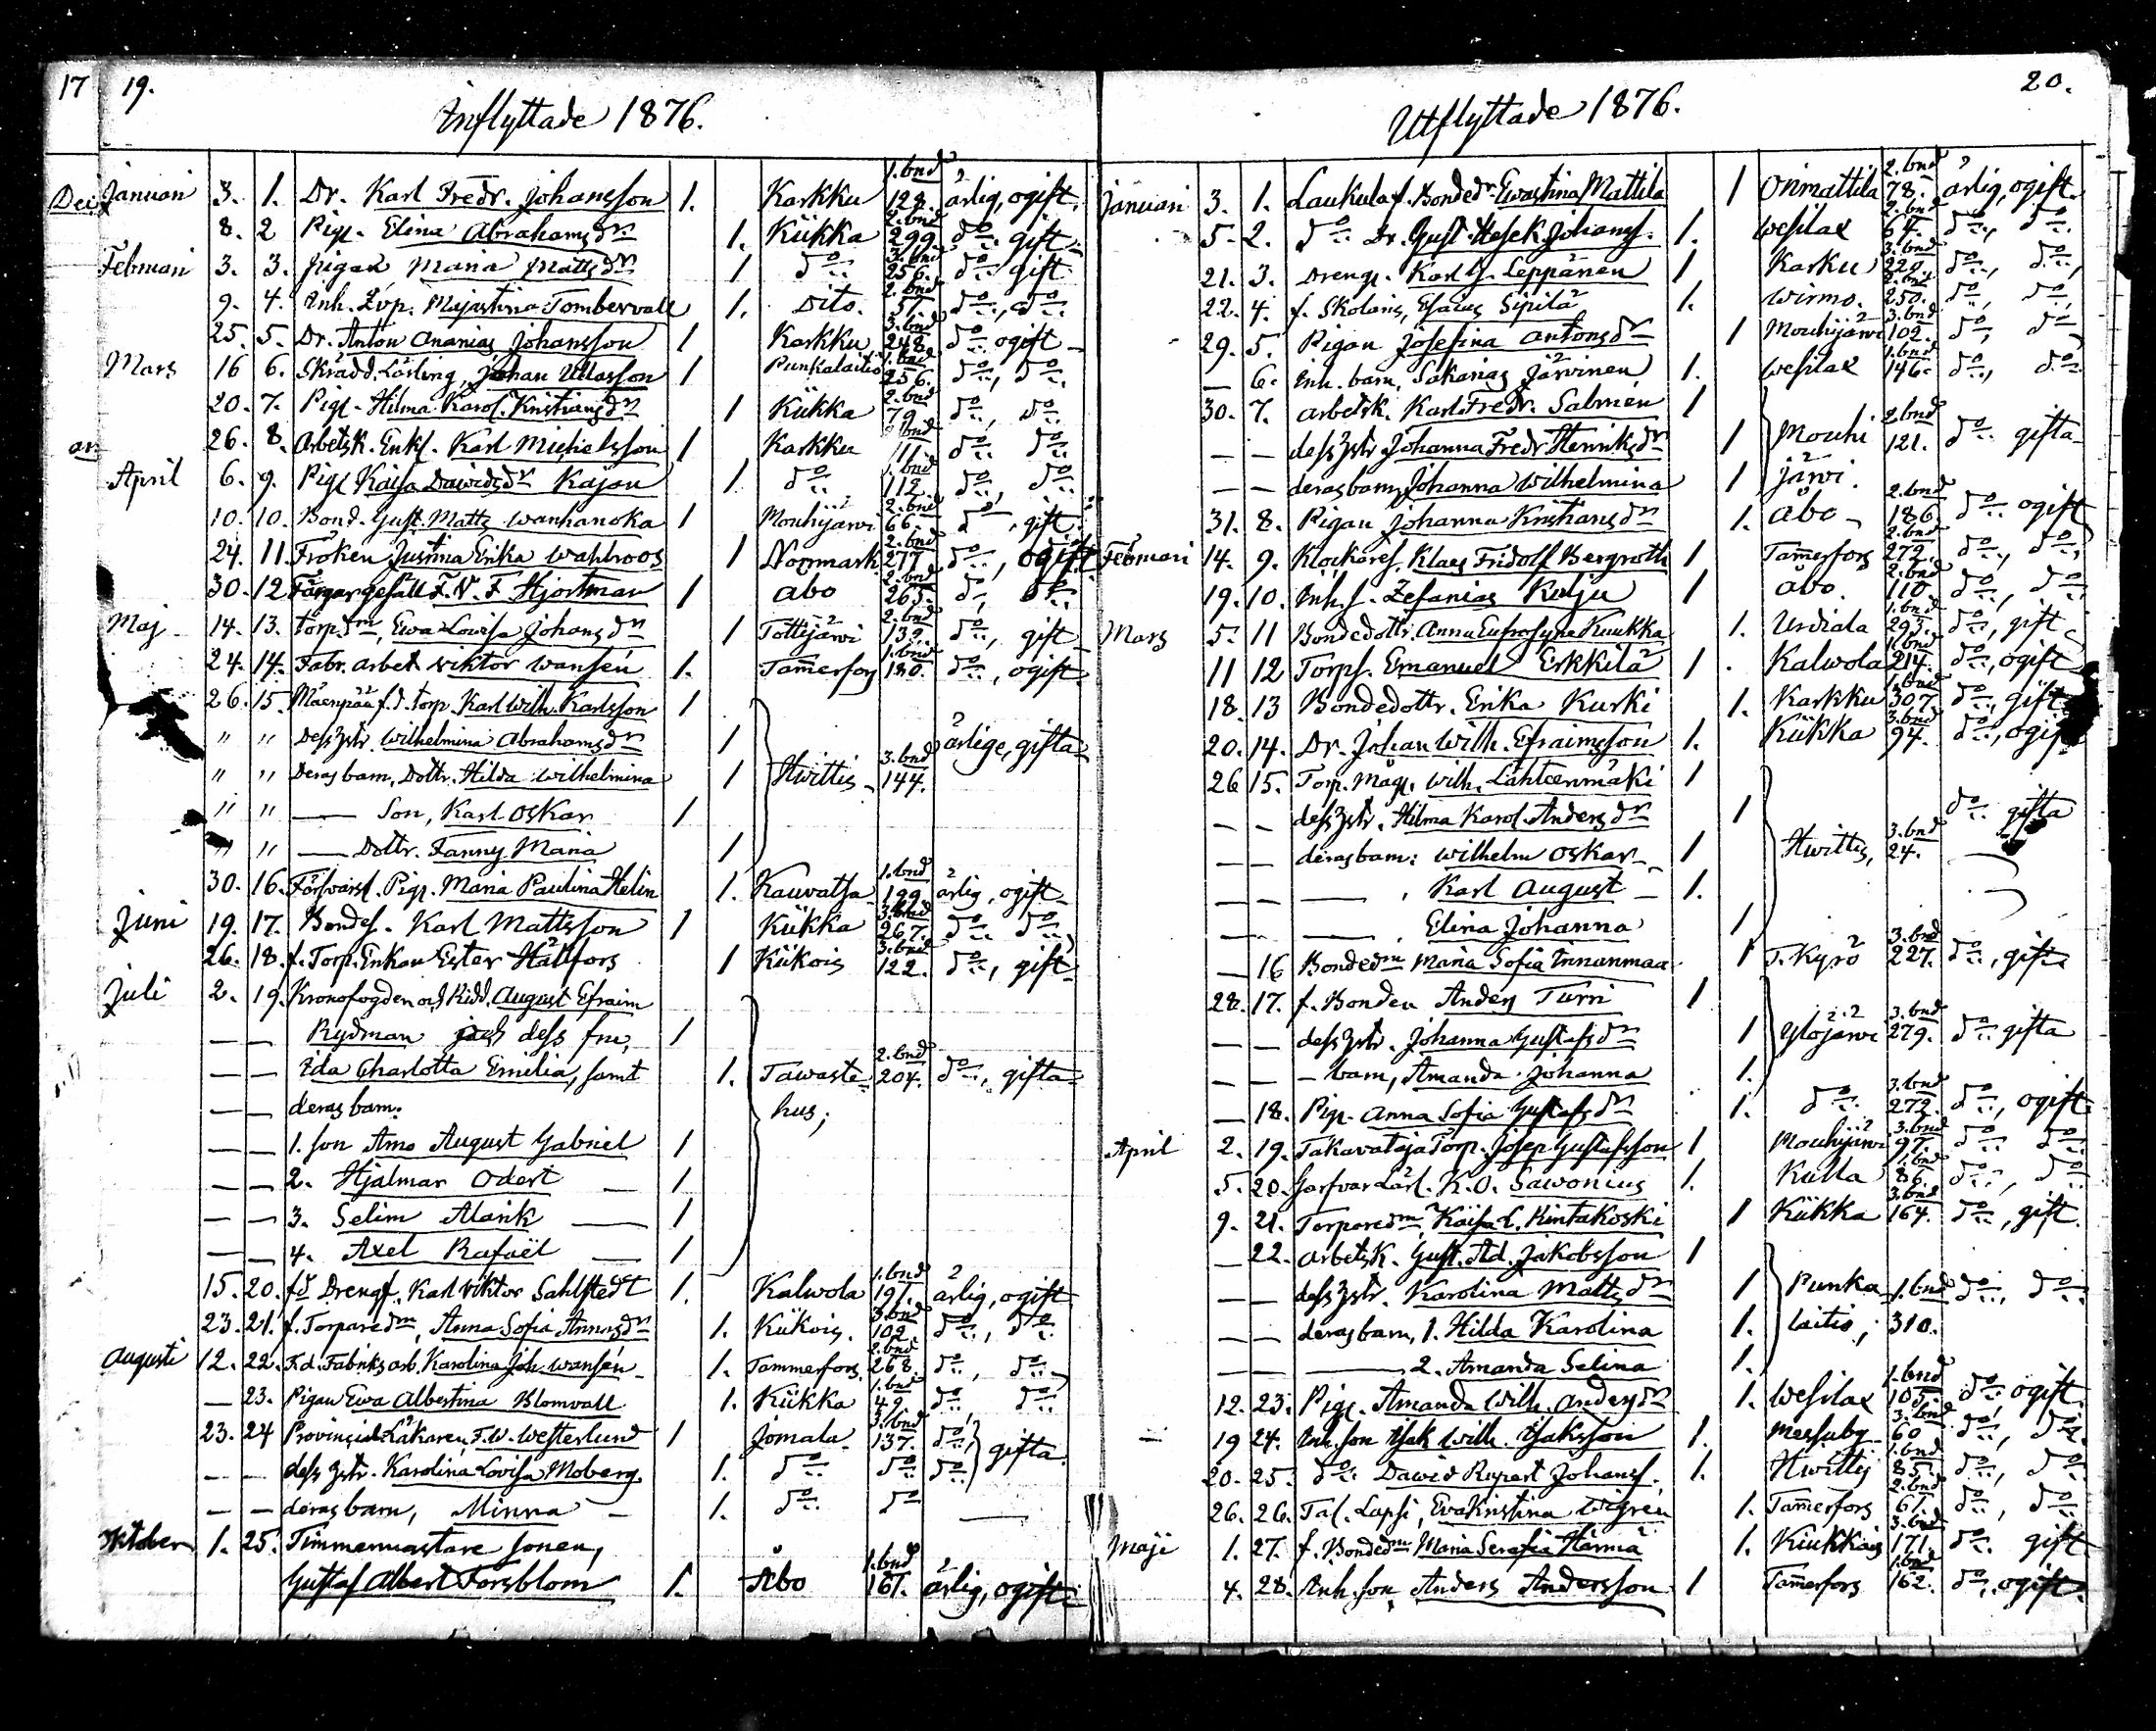 17 19.
Inflyttade 1876.
Januari 3. 1. Dr. Karl Fredr. Johansson 1. Karkku 1. bnd 128. ärlig, ogift.
8. 2 Pig. Elina Abrahamsdr 1. Kiikka 2. bnd 299. do gift.
Februari 3. 3. Pigan Maria Mattsdr 1 do 3. bnd 256. do gift.
9. 4. Inh. Majastina Tombervall 1. Dito. 2. bnd 57. do, do
25. 5. Dr. Anton Ananias Johansson 1 Karkku 3. bnd 248. do ogift
Mars 16 6. Skrädd. Lärling, Johan 1 Punkalaitio 1. bnd 256. do, do
20. 7. Pig. Hilma Karol. Kristiansdr 1 Kiikka 2. bnd 79. do, do
26. 8. Arbetsk. Enkl. Karl Michelsson 1 Karkku bnd 111. do do
April 6. 9. Pig. Kaisa Davidsdr Kajan 1. do 1. bnd 112. do, do
10. 10. Bond. Gust. Matts Wanhanoka 1 Mouhijärvi 2. bnd 66. do, gift.
24. 11 Fröken Justina Erika Wahlroos 1 Norrmark 2. bnd 277 do, ogift
30. 12 Färgargesäll F. V. F Hjortman 1 Åbo 2. bnd 265. do, do
Maj 14. 13. torp.dm, Ewa Lovisa Johansdr 1 Tottijärvi 2. bnd 139. do, gift
24. 14. Fabr. arbet. Viktor Wansén 1. Tammerfors 1. bnd 180. do, ogift.
26. 15. Mäenpää f. d. torp. Karl Wilh. Karlsson 1
" " Dess hstr. Wilhelmina Abrahamsdr 1 ärlige, gifta
" " Deras barn, Dottr. Hilda Wilhelmina 1 Hwittis 3. bnd 144.
" " — Son, Karl Oskar 1
" " — Dottr. Fanny Maria 1
30. 16. Försvarsl. Pig. Maria Paulina Helin 1. Kauvatsa 1. bnd 199 ärlig, ogift
Juni 19. 17. Bondes. Karl Mattsson 1 Kiikka 3. bnd 267. do do
26. 18. f. Torp. Enkan Ester Hällfors 1 Kiikois 3. bnd 122. do, gift
Juli 2. 19. Kronofogden och Ridd. August Efraim
— — Rydman och dess fru, 1
— — Ida Charlotta Emilia, samt 1. Tawaste- 2. bnd 204. do, gifta
— — deras barn: hus;
— — 1. son Arno August Gabriel 1
— — 2. Hjalmar Odert — 1
— — 3. Selim Alarik — 1
— — 4. Axel Rafaël — 1
15. 20. fd Drengf. Karl Viktor Sahlstedt 1. Kalwola 1. bnd 197. ärlig, ogift
23. 21. f. Torparedm, Anna Sofia Annasdr 1. Kiikois. 3. bnd 102. do, do
Augusti 12. 22. F.d. Fabriksarb. Karolina Joh. Wansén 1. Tammerfors 2. bnd 268. do, do
— 23. Pigan Ewa Albertina Blomvall 1. Kiikka 1. bnd 49. do do
23. 24 Provincial Läkaren F. W. Westerlund 1 Jomala 3. bnd 137. do, gifta
— — dess hstr. Karolina Lovisa Moberg 1. do do do
— — deras barn, Minna 1. do do —
Oktober 1. 25. Timmermastare sonen,
Gustaf Albert Forsblom 1. Åbo 1. bnd 167. ärlig, ogift
20.
Utflyttade 1876.
Januari 3. 1. Laukula f. Bondedr Ewastina Mattila 1 Orimattila 2. bnd 78. ärlig, ogift
5. 2. do Dr. Gust. Johans. 1. Wesilax 2. bnd 67. do, do
21. 3. Drengs. Karl G. Leppänen 1 Karku 3. bnd 220. do, do,
22. 4. f. Skolaris, Esaias Sipilä 1. Wirmo. 2. bnd 250. do, do,
29. 5. Pigan Josefina Antonsdr 1 Mouhijärvi 3. bnd 102. do, do
— 6. Inh. barn, Sakarias Järvinen 1. Wesilax 1. bnd 146. do, do
30. 7. arbetsk. Karl Fredr. Salmén 1
— — dess hstr. Johanna Fredr Henriksdr 1 Mouhi 2. bnd 121. do gifta
— — deras barn Johanna Wilhelmina 1 järwi.
31. 8. Pigan Johanna Kristiansdr 1. Åbo 2. bnd 186. do ogift
Februari 14. 9. Klockares. Klaes Fridolf Bergroth 1 Tammerfors 2. bnd 272. do, do
19. 10. Inh. s. Zefanias Kulju 1 Åbo. 2. bnd 110. do, do
Mars 5. 11 Bondedottr. Anna Eufrosyna Kuukka 1. Urdiala 1. bnd 293. do, gift
11 12 Torps. Emanuel Erkkilä 1 Kalwola 1. bnd 214. do, ogift
18. 13 Bondedottr. Erika Kurki 1. Karkku 1. bnd 307. do, gift
20. 14. Dr. Johan Wilh. Efraimsson 1. Kiikka 3. bnd 94. do, ogift
26 15. Torp. Måg. Wilh. Lähteenmäki 1
— — dess hstr. Hilma Karol. Andersdr 1 do gifta
— — deras barn: Wilhelm Oskar 1 Hwittis, 3. bnd 24.
— — — , Karl August — 1.
— — — , Elina Johanna 1
— 16 Bondedm Maria Sofia Innanmaa 1 T. Kyrö 3. bnd 227. do, gift
28. 17. f. Bonden Anders Turri 1
— — dess hstr. Johanna Gustafsdr 1 Ylöjärvi 3. bnd 279. do gifta
— — — barn, Amanda Johanna 1.
— 18. Pig. Anna Sofia Gustafsdr 1. do 3. bnd 272. do, ogift
April 2. 19. Takavataja Torp. Josep Gustafsson 1 Mouhijärvi 3. bnd 97. do do
5. 20. Garfvar Lärl. K. O. Sawonius 1. Kulla 1. bnd 86. do, do
9. 21. Torparedm, Kaisa L. Rintakoski 1 Kiikka 3. bnd 164. do, gift.
— 22. Arbetsk. Gust. Ad. Jakobsson 1
— — dess hstr. Karolina Mattsdr 1 Punka- 1. bnd do, do
— — deras barn, 1. Hilda Karolina 1. laitio; 310.
— — — 2. Amanda Selina 1.
12. 23. Pig. Amanda Wilh. Andersdr 1. Wesilax 1. bnd 105. do ogift.
— 19 24. Inh. son Isak Wilh. Isaksson 1. Messuby 3. bnd 60 do, do.
20. 25. do David Rupert Johans. 1. Hwittis 1. bnd 85. do, do
26. 26. Tal. Lapsi, Eva Kristina Wigren 1. Tammerfors 2. bnd 61. do, do
Maji 1. 27. f. Bondedm Maria Serafia Härmä 1. Kiukkais 3. bnd 171. do gift
4. 28. Inh. son, Anders Andersson 1 Tammerfors 1. bnd 162. do, ogift.